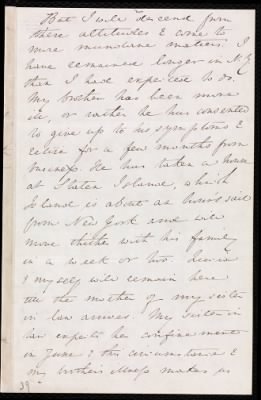 But I will descend from
these altitudes & come to
more mundane matters. I
have remained longer in N.Y.
than I had expected to do.
My brother has been more
ill, or rather he has consented
to give up to his symptoms &
retire for a few months from
business. He has taken a house
at Staten Island, which
Island is about an hour's sail
from New York and will
move thither with his family
in a week or two.
& I myself will remain here
till the mother of my sister
in law arrives. My sister in
law expects her confinement
in June & this circumstance &
my brother's illness makes us
39